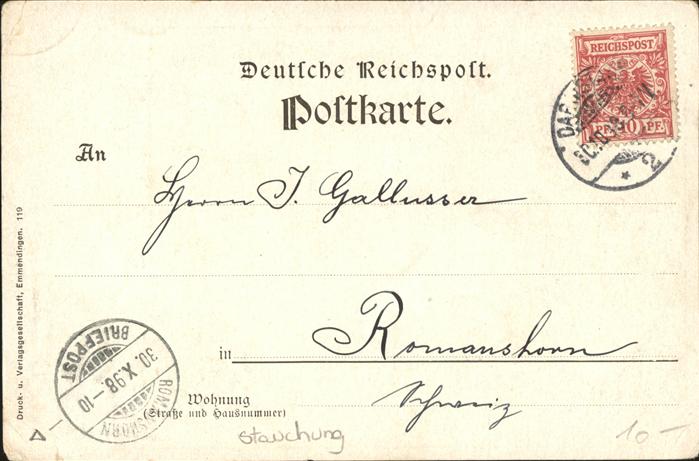 REICHSPOST
10
Deutsche Reichspost.
Postkarte.
An
Herrn J. Gallusser
in Romanshorn
Schweiz
Wohnung
(Straße und Hausnummer)
BRIEFPOST
30. X. 98. –10
ROMANSHORN
Druck- u. Verlagsgesellschaft, Emmendingen. 119
Stauchung
10–